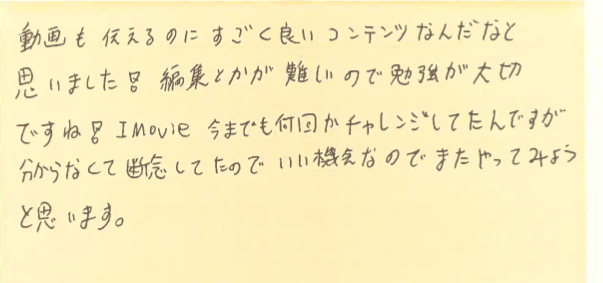 動画も伝えるのにすごく良いコンテンツなんだなと
思いました!! 編集とかが難しいので勉強が大切
ですね!! IMovie 今までも何回かチャレンジしてたんですが
分からなくて断念してたのでいい機会なのでまたやってみよう
と思います。